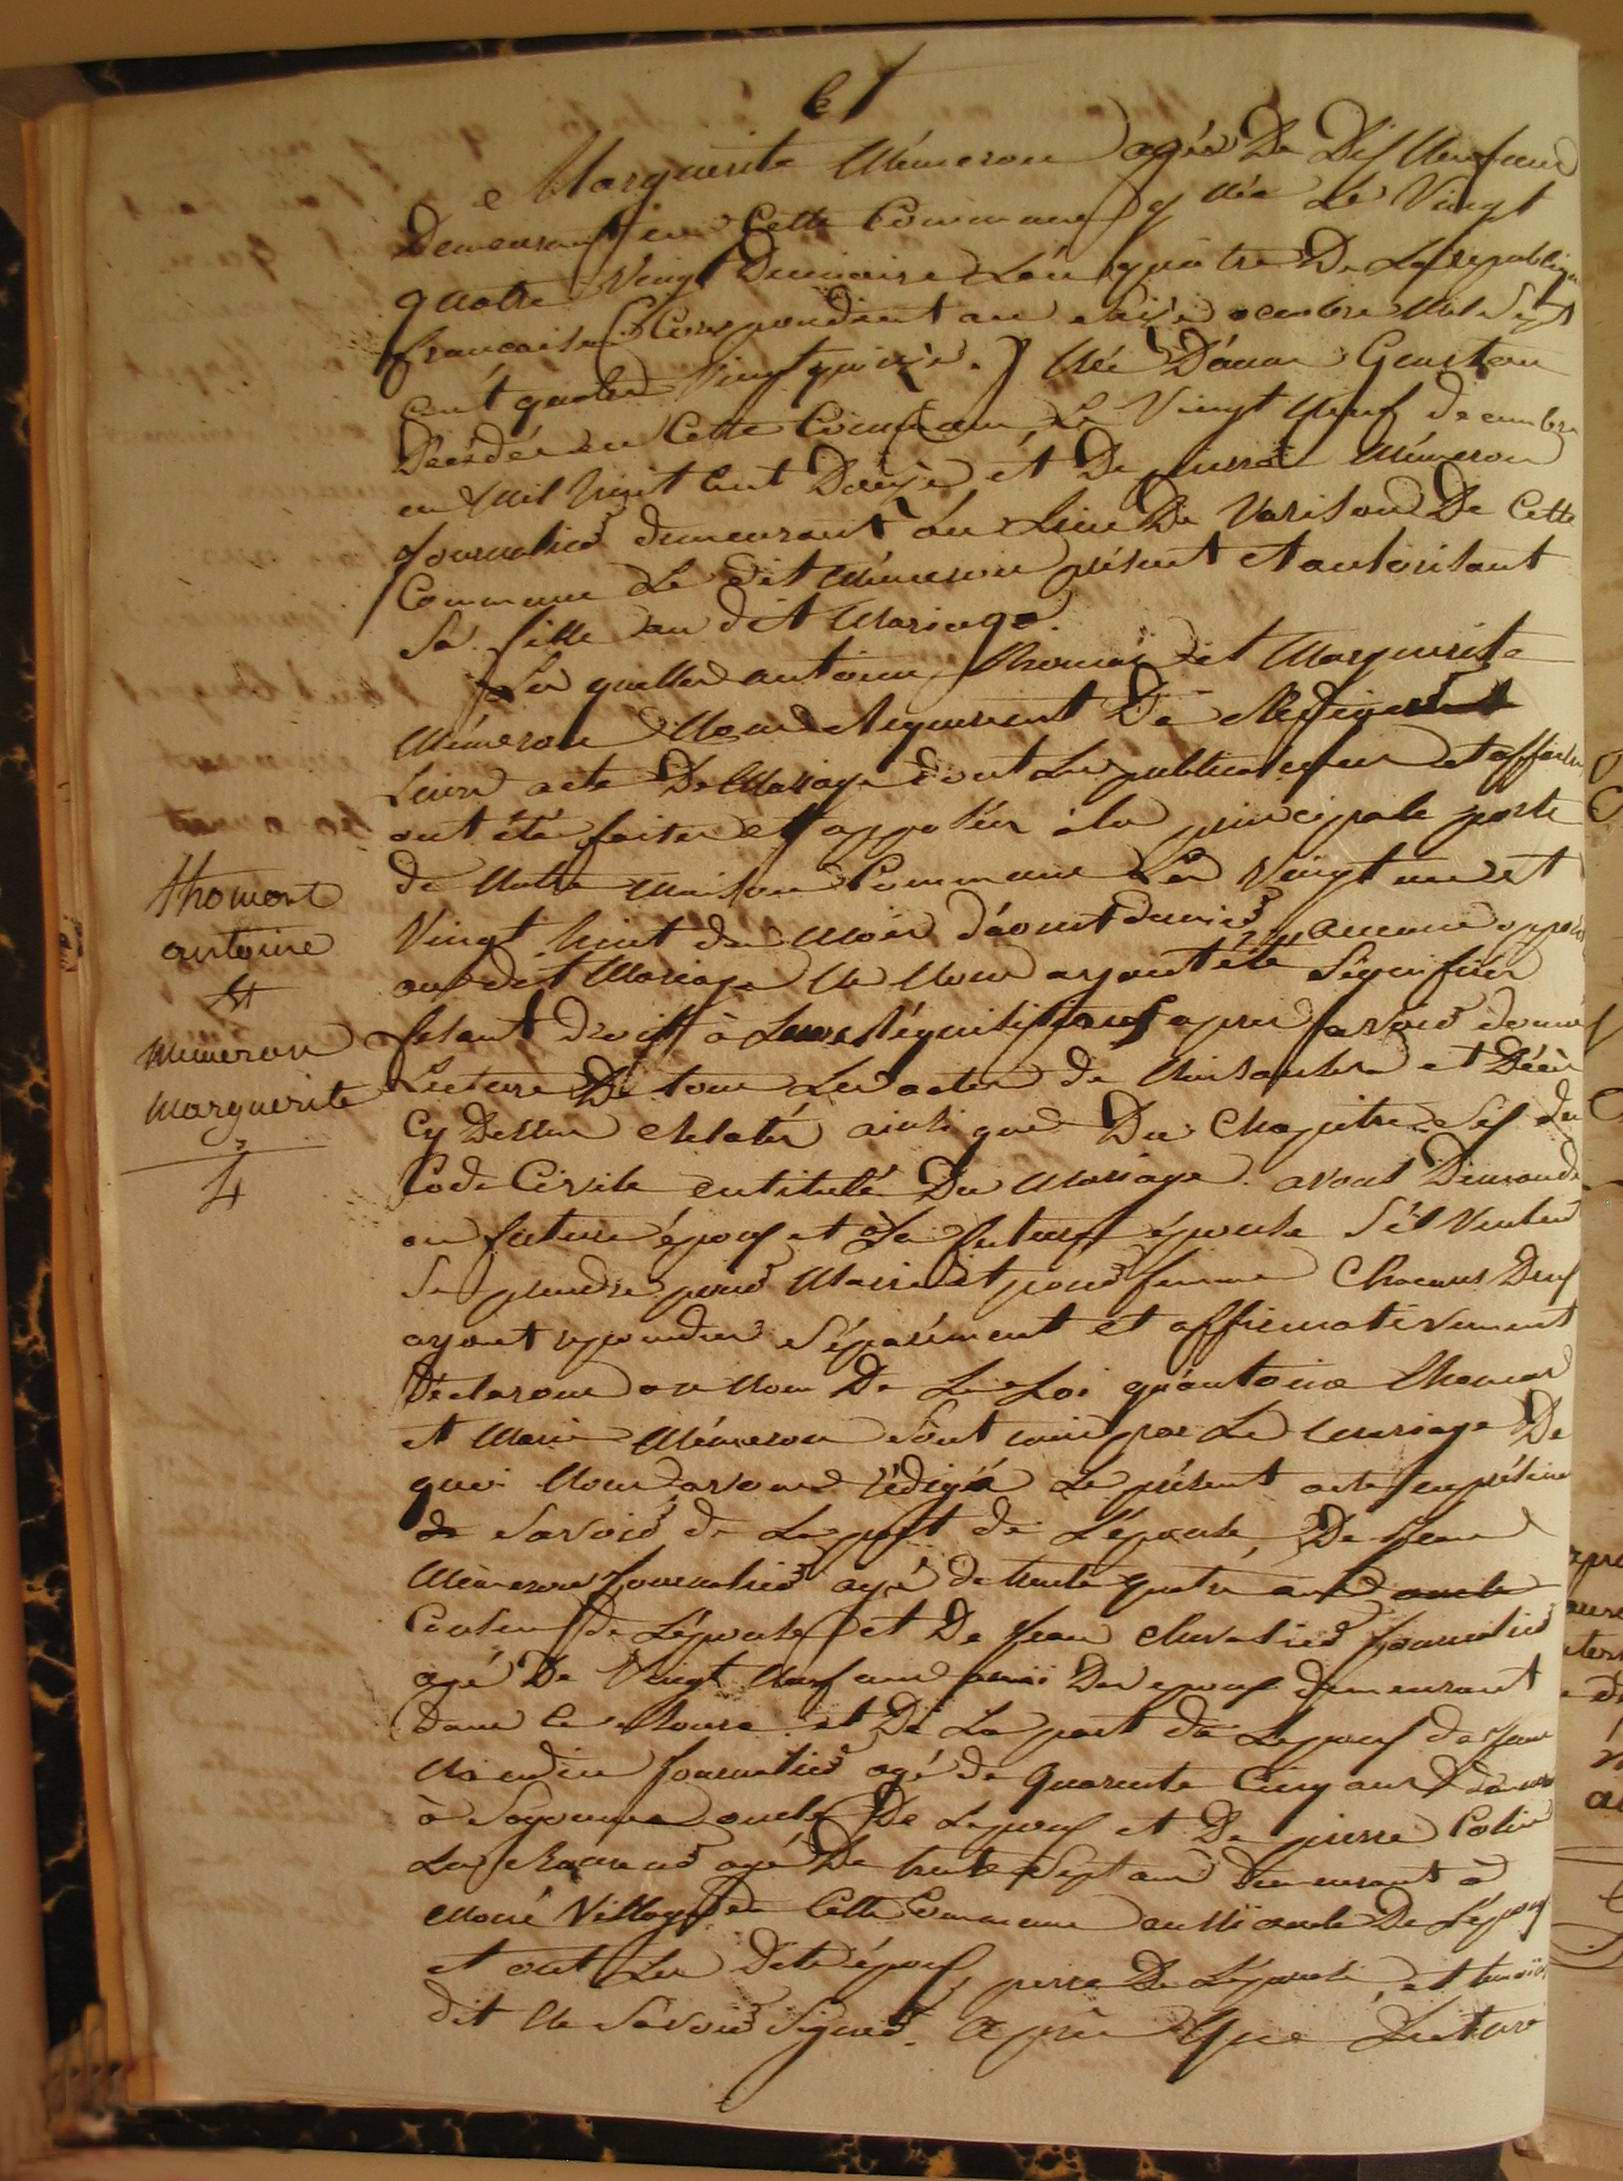 et
Marguerite Mémeron agée De Dix Neuf ans
Demeurant en Cette Commune y Née Le Vingt
quatre Vingt Demiaire L'an quatre De La republique
francaise Correspondant au Seize octobre Mil Sept
Cent quatre Vingt quinze. Née D'anne
Décédée en Cette Commune Le Vingt Neuf decembre
en Mil huit Cent Douze et De pierre Mémeron
Journalier demeurant au Lieu De Varison De Cette
Commune Le dit Mémeron présent et autorisant
Sa fille au dit Mariage
Les quelles antoine thomas et Marguerite
Mémeron Nous Requierent De Rediger
Leur acte De Mariage dont Les publications et affiches
ont été faites et apposées à la principale porte
de Notre Maison Commune Les Vingt un et
Vingt huit du Mois d'aoust dernier, aucune oppon
au dit Mariage Ne Nous ayant été Signifiée
fesant droit à Leurs Réquisitions apres avoir donné
Lecture De tous Les actes de Naissance et Décès
Cy Dessus Relatés ainsi que Du Chapitre Six du
Code Civile entitulé Du Mariage. avons Demandé
au future époux et à La future épouse S'il Veulent
Se prendre pour Mari et pour femme Chacuns Deux
ayant repondus Séparément et affirmativement
Déclarons au Nom De La Loi qu'antoine thomas
et Marie Mémeron Sont unis par Le Mariage De
quoi Nous avons rédigé Le présent acte en présence
de Savoir de La part de L'épouse, De Jean
Mémeron Journalier agé de trente quatre ans oncle
Cousin de L'épouse et De Jean Chevalier Journalier
agé De Vingt Neuf ans amis Des epoux demeurant
dans Ce Bourg et De La part de Lepoux de Jean
Journalier agé de quarente Cinq ans
à Sogonne oncle De Lepoux et De pierre Colin
agé De trente Sept ans demeurant à
Village de Cette Commune aussi oncle De L'époux
et ont Les Dits époux, perre De L'épouse, et temoins
dit Ne Savoir Signer. Après Que Lecture
thomont
antoine
Et
Mémeron
Marguerite